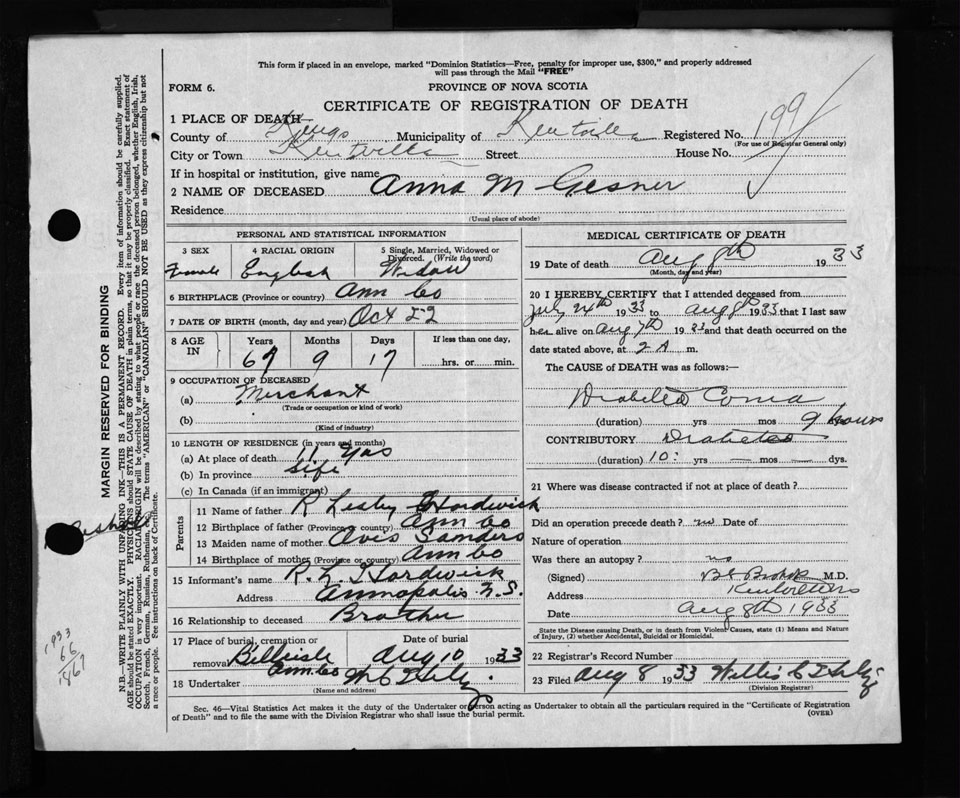 This form if placed in an envelope, marked "Dominion Statistics—Free, penalty for improper use, $300," and properly addressed
will pass through the Mail "FREE"
FORM 6.
PROVINCE OF NOVA SCOTIA
CERTIFICATE OF REGISTRATION OF DEATH
1 PLACE OF DEATH—
County of Kings Municipality of Kentville Registered No. 199
(For use of Registrar General only)
City or Town Kentville Street House No.
If in hospital or institution, give name
2 NAME OF DECEASED Anna M Gesner
Residence
(Usual place of abode)
PERSONAL AND STATISTICAL INFORMATION
3 SEX 4 RACIAL ORIGIN 5 Single, Married, Widowed or
Divorced. (Write the word)
Female English Widow
6 BIRTHPLACE (Province or country) Ann Co
7 DATE OF BIRTH (month, day and year) Oct 22
8 AGE IN Years Months Days If less than one day,
67 9 17 hrs. or min.
9 OCCUPATION OF DECEASED
(a) Merchant
(Trade or occupation or kind of work)
(b)
(Kind of industry)
10 LENGTH OF RESIDENCE (in years and months)
(a) At place of death 11 yrs
(b) In province Life
(c) In Canada (if an immigrant)
Parents
11 Name of father R Lesley Hardwick
12 Birthplace of father (Province or country) Ann Co
13 Maiden name of mother Avis Sanders
14 Birthplace of mother (Province or country) Ann Co
15 Informant's name R. L. Hardwick
Address Annapolis N.S.
16 Relationship to deceased Brother
17 Place of burial, cremation or Date of burial
removal Belleisle Aug 10 1933
Ann Co
18 Undertaker
(Name and address)
MEDICAL CERTIFICATE OF DEATH
19 Date of death Aug 8th 1933
(Month, day and year)
20 I HEREBY CERTIFY that I attended deceased from
July 24th 1933 to Aug 8th 1933 that I last saw
her alive on Aug 7th 1933 and that death occurred on
date stated above, at 2 A m.
The CAUSE of DEATH was as follows:—
Diabetic Coma
(duration) yrs mos 9 hours
CONTRIBUTORY Diabetes
(duration) 10 yrs — mos — dys.
21 Where was disease contracted if not at place of death?
Did an operation precede death? no Date of
Nature of operation
Was there an autopsy? no
(Signed) M.D.
Address
Date Aug 8th 1933
State the Disease causing Death, or in death from Violent Causes, state (1) Means and Nature
of Injury, (2) whether Accidental, Suicidal or Homicidal.
22 Registrar's Record Number
23 Filed Aug 8 1933
(Division Registrar)
Sec. 46—Vital Statistics Act makes it the duty of the Undertaker or person acting as Undertaker to obtain all the particulars required in the "Certificate of Registration
of Death" and to file the same with the Division Registrar who shall issue the burial permit.
(OVER)
MARGIN RESERVED FOR BINDING
N.B.—WRITE PLAINLY WITH UNFADING INK—THIS IS A PERMANENT RECORD. Every item of information should be carefully supplied.
AGE should be stated EXACTLY. PHYSICIANS should STATE CAUSE OF DEATH in plain terms, so that it may be properly classified. Exact statement of
OCCUPATION is very important. RACIAL ORIGIN will be described by stating to what people or race the deceased person belonged, whether English, Irish,
Scotch, French, German, Russian, Ruthenian, etc. The terms "AMERICAN" or "CANADIAN" SHOULD NOT BE USED as they express citizenship but not
a race or people. See instructions on back of Certificate.
1933
66
1867